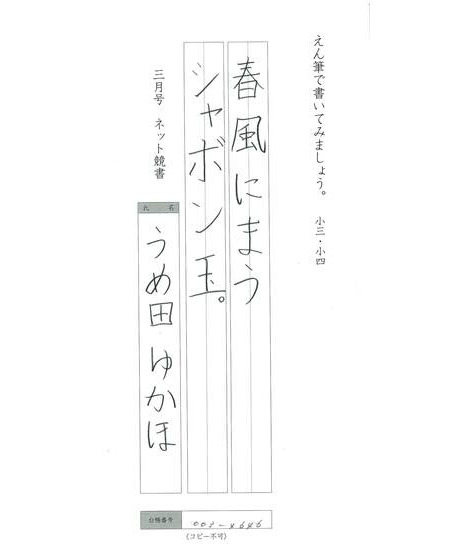 えん筆で書いてみましょう。 小三・小四
春風にまう
シャボン玉。
三月号 ネット競書
氏 名
うめ田 ゆかほ
台帳番号
(コピー不可)